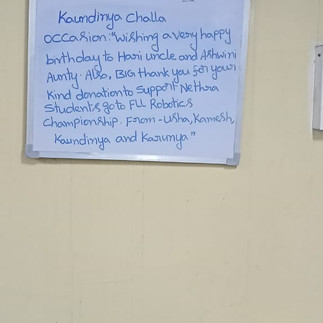 Kaundinya Challa
Occasion:"Wishing a very happy
birthday to Hari uncle and Ashwini
Aunty. Also, BIG thank you for your
kind donation to support Nethra
Students go to FLL Robotics
Championship. From - Usha, Kamesh,
Kaundinya and Karunya"